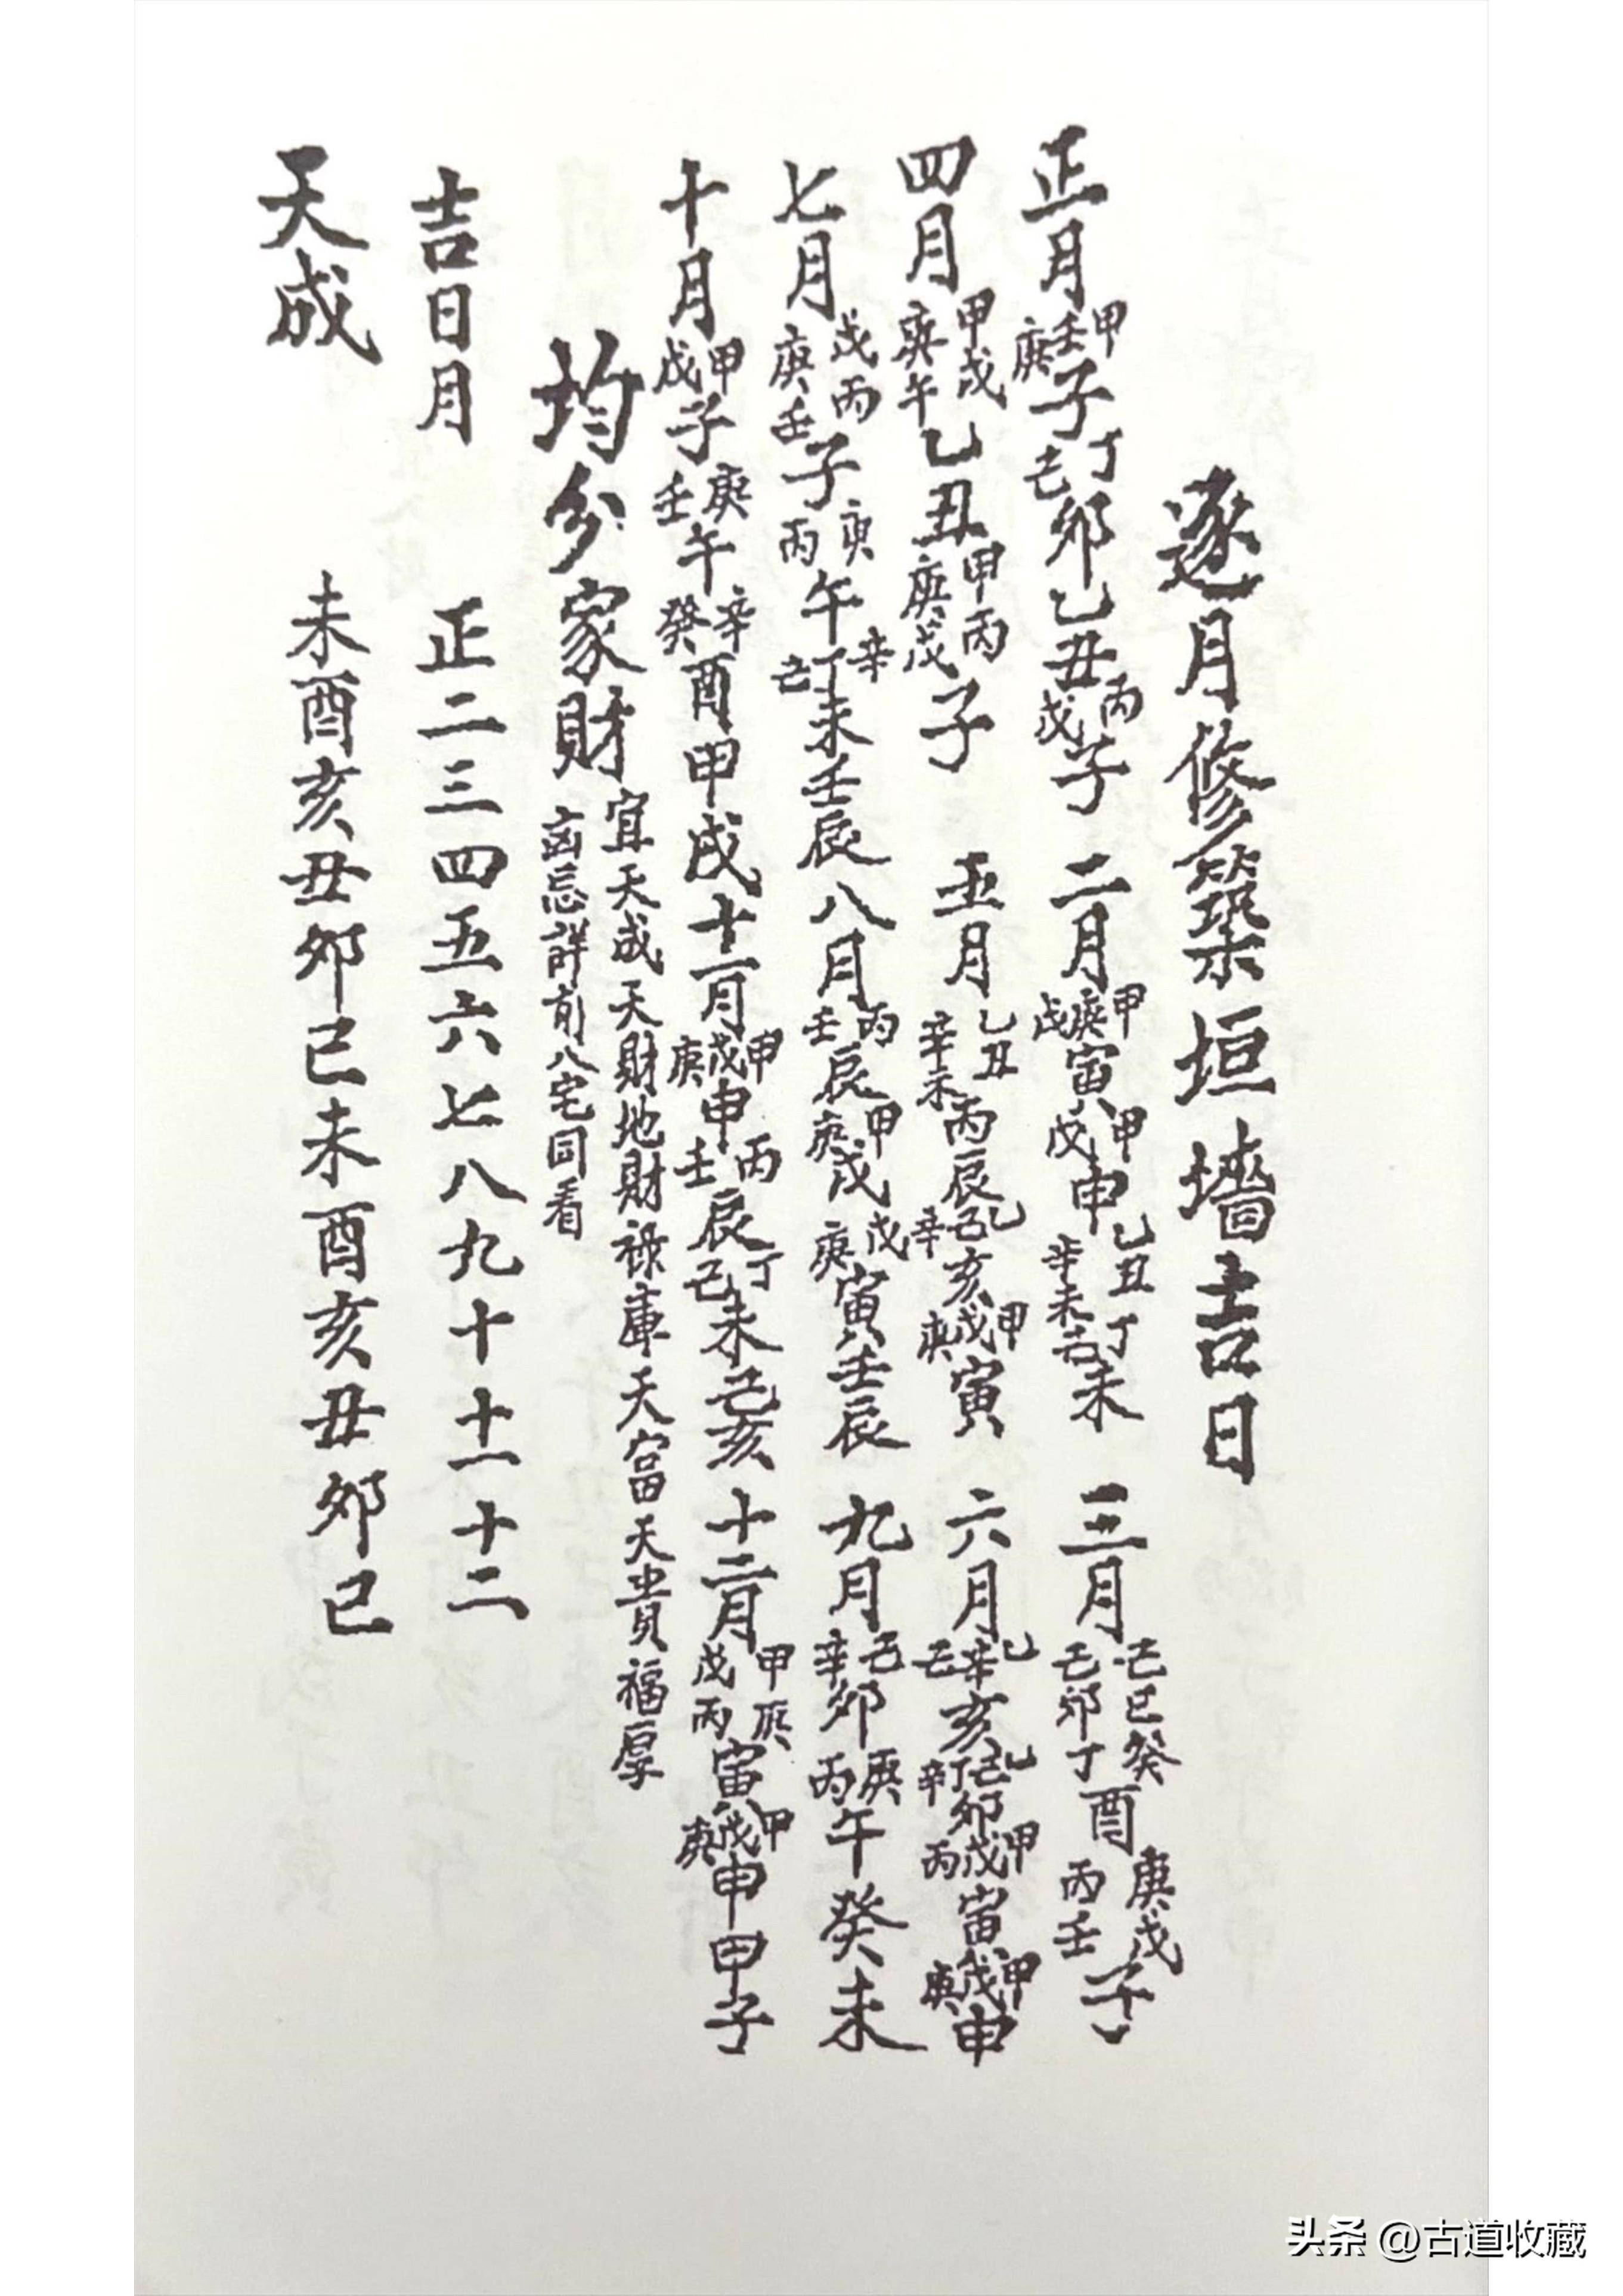 逐月修築垣墻吉日
正月甲壬庚子丁己卯乙丑丙戊子 二月甲庚戊寅甲戊申乙丑辛未丁己未 三月己巳癸己卯丁酉庚戊丙壬子
四月甲戌庚午乙丑甲丙庚戊子 五月乙丑辛未丙辰乙己辛亥甲戊庚寅 六月乙辛己亥乙己丁辛卯甲戊丙寅甲戊庚申
七月戊丙庚壬子庚丙午辛丁己未壬辰八月丙壬辰甲庚戌戊庚寅壬辰 九月己辛卯庚丙午癸未
十月甲戊子庚壬午辛癸酉甲戌十一月甲戊庚申丙壬辰丁己未己亥 十二月甲庚戊丙寅甲戊庚申甲子
均分家財
宜天成天財地財祿庫天富天貴福厚
凶忌詳前八宅同看
吉日月 正二三四五六七八九十十一十二
天成 未酉亥丑卯巳未酉亥丑卯巳
头条 @古道收藏